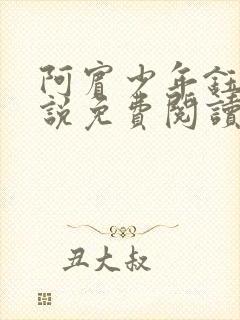 阿賓少年鈺
說免費閱讀
丑大叔